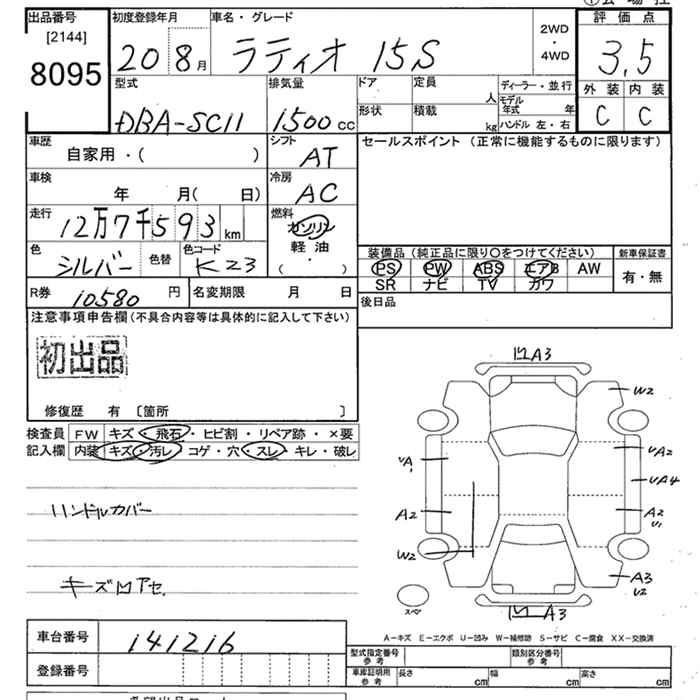 出品番号 初度登録年月 車名・グレード 2WD・4WD 評価点
[2144]
8095 20 8月 ラティオ 15S 3.5
型式 排気量 ドア 定員 人 ディーラー・並行 外装 内装
DBA-SC11 1500cc 形状 積載 kg モデル年式 年 ハンドル 左・右 C C
車歴 シフト セールスポイント (正常に機能するものに限ります)
自家用・( ) AT
車検 冷房
年 月( 日) AC
走行 燃料
12万7千593km ガソリン
軽油
・
( )
色 色替 色コード 装備品 (純正品に限り○をつけてください) 新車保証書
シルバー K23 PS PW ABS エアB AW 有・無
SR ナビ TV カワ
R券 10580円 名変期限 月 日 後日品
注意事項申告欄(不具合内容等は具体的に記入して下さい)
初出品
修復歴 有 〔箇所 〕
検査員 FW キズ・飛石・ヒビ割・リペア跡・×要
記入欄 内装 キズ・汚レ・コゲ・穴・スレ・キレ・破レ
A3
W2
A
A2
A4
A2
A2
W2
A3
A3
スペ
ハンドルカバー
A-キズ E-エクボ U-凹み W-補修跡 S-サビ C-腐食 XX-交換済
車台番号 141216 型式指定番号 参考 類別区分番号 参考
登録番号 車庫証明用 参考 長さ cm 幅 cm 高さ cm